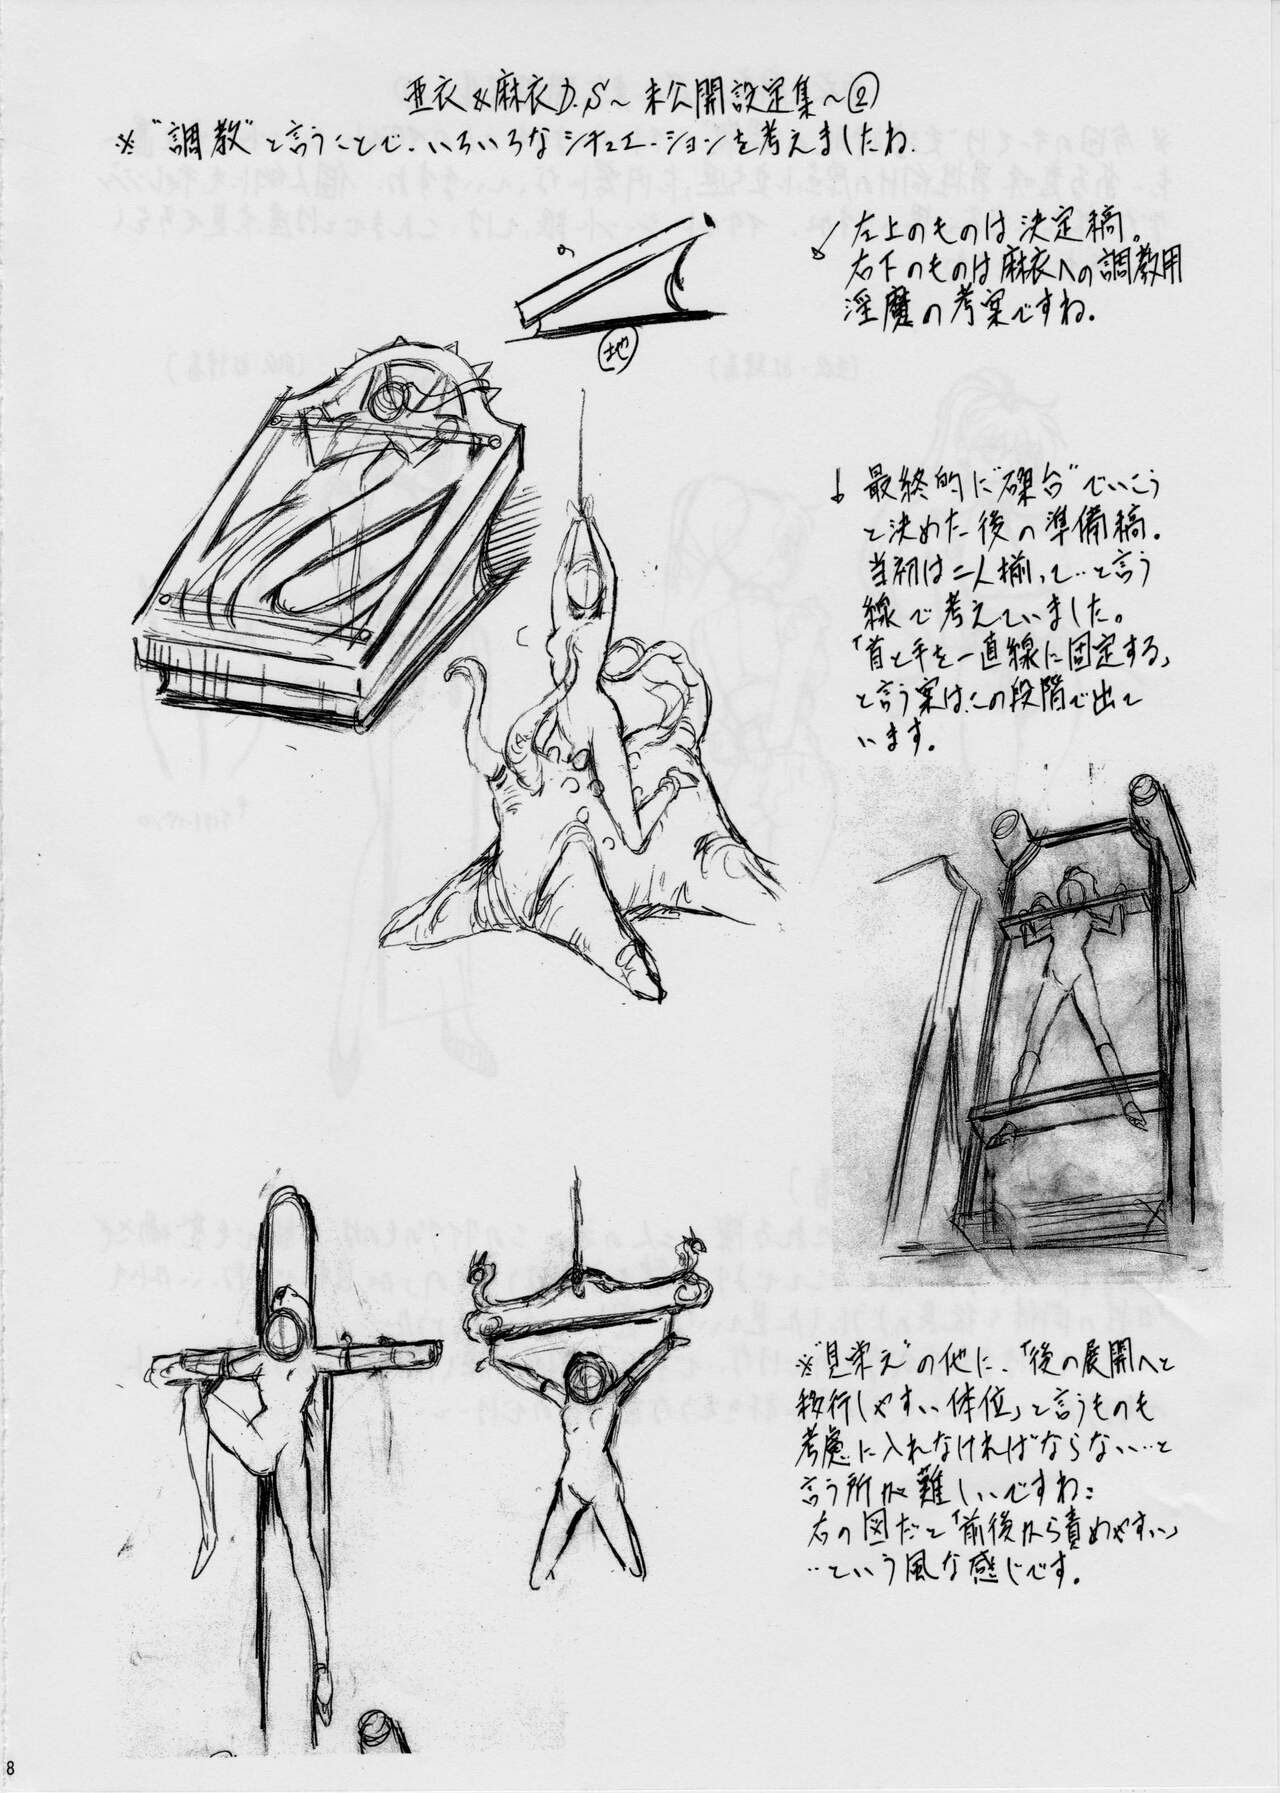 亜衣&麻衣D.S～未公開設定集～②
※"調教"と言うことで、いろいろなシチュエーションを考えましたね.
左上のものは決定稿。
右下のものは麻衣への調教用
淫魔の考案ですね.
地
最終的に"磔台"でいこう
と決めた後の準備稿。
当初は二人揃って…と言う
線で考えていました。
「首と手を一直線に固定する」
と言う案は、この段階で出て
います。
※"見栄え"の他に、「後の展開へと
移行しやすい体位」と言うものも
考慮に入れなければならない…と
言う所が難しいですね:
右の図だと「前後から責めやすい」
…という風な感じです.
8